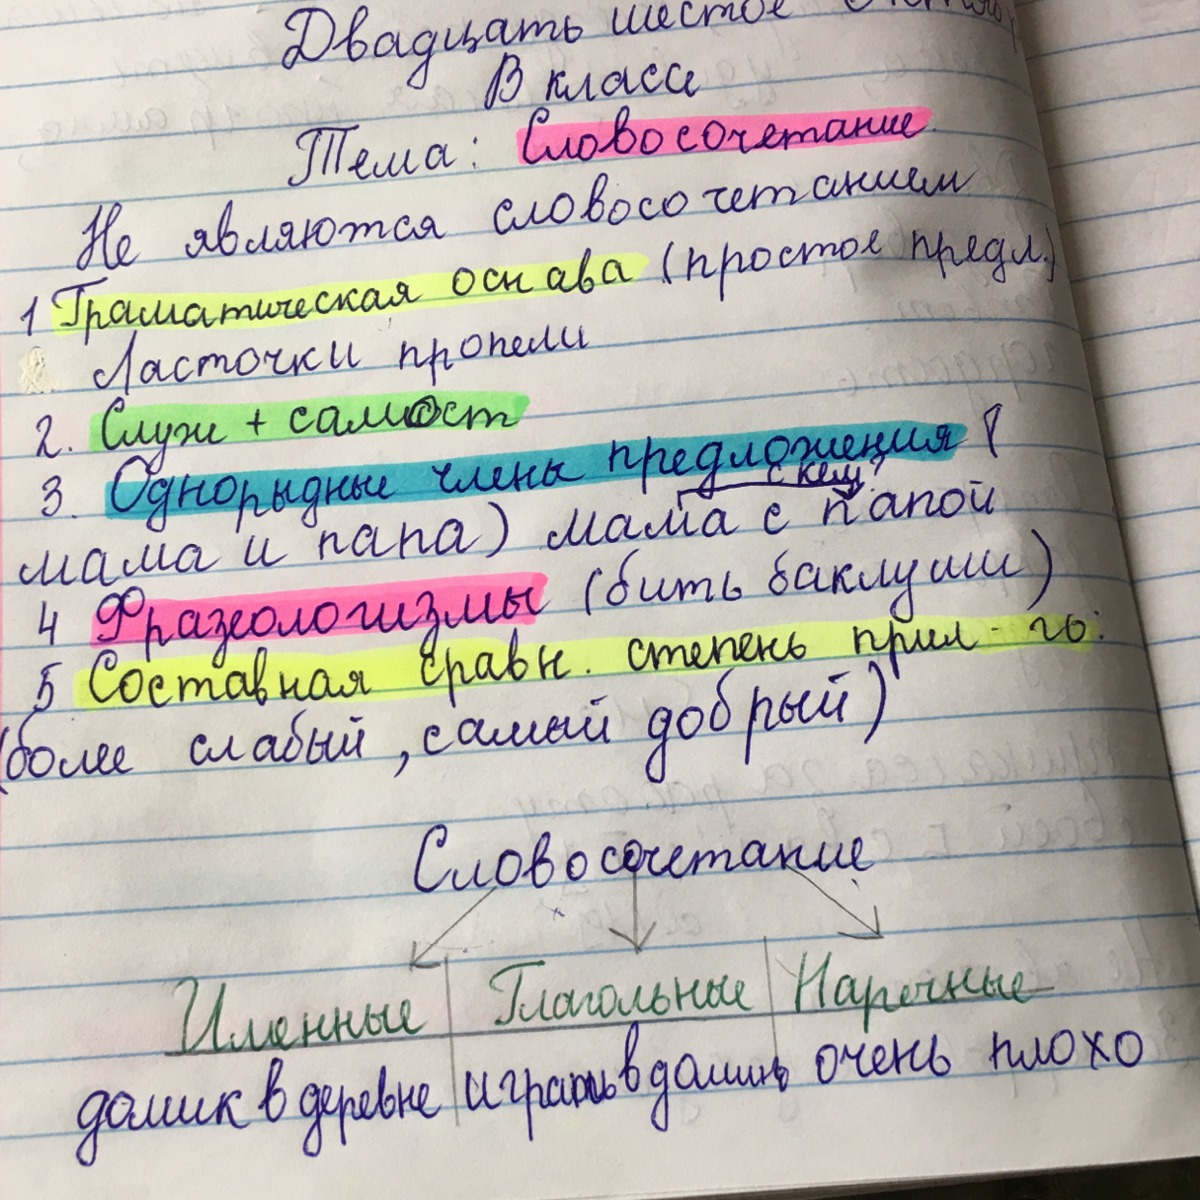 Двадцать шестое
В класе
Тема: Словосочетание
Не являются словосочетанием
1 Граматическая оснава (простое предл.)
Ласточки пропели
2. Служ + самост
3. Однорыдные члены предложения (
с кем?
мама и папа) мама с папой
4 Фразеологизмы (бить баклуши)
5 Составная сравн. степень прил-го:
(более слабый, самый добрый)
Словосочетание
Именные Глагольные Наречные
домик в деревне играть в домик очень плохо